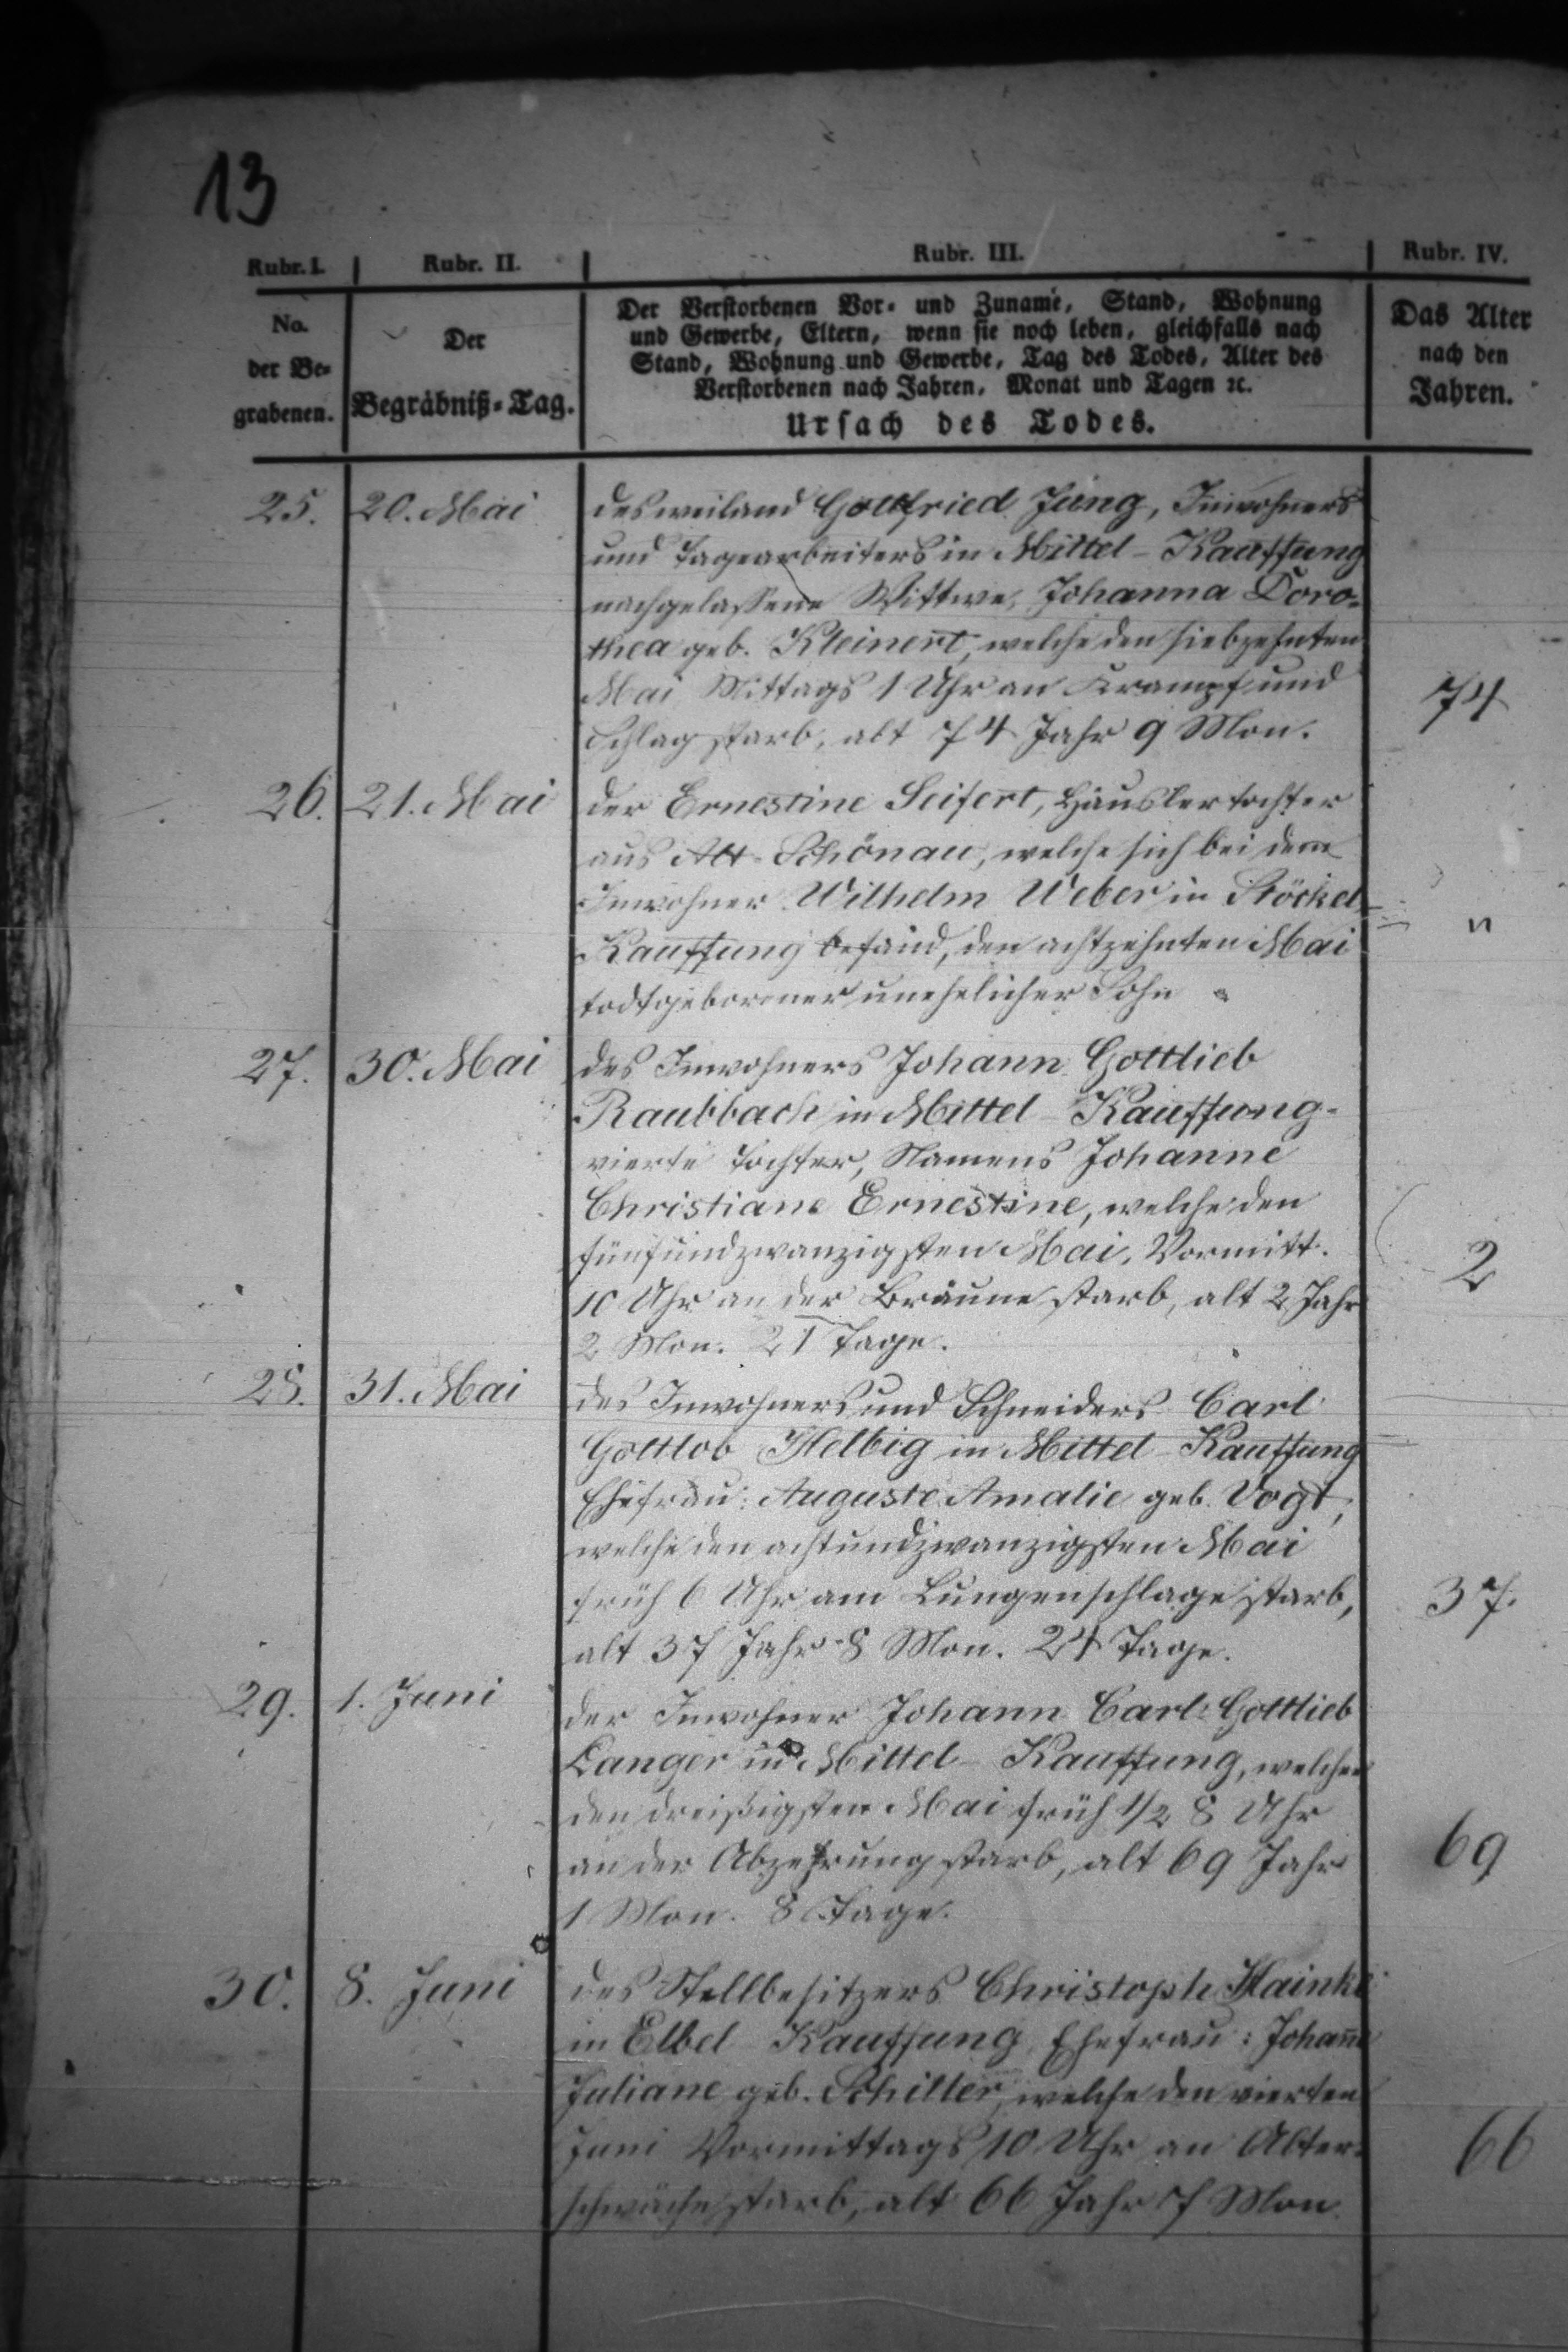 13
Rubr. I. Rubr. II. Rubr. III. Rubr. IV.
No. der Begrabenen.
Der Begräbniß-Tag.
Der Verstorbenen Vor- und Zuname, Stand, Wohnung
und Gewerbe, Eltern, wenn sie noch leben, gleichfalls nach
Stand, Wohnung und Gewerbe, Tag des Todes, Alter des
Verstorbenen nach Jahren, Monat und Tagen ꝛc.
Ursach des Todes.
Das Alter
nach den
Jahren.
25. 20. Mai des weiland Gottfried Jung, Inwohners
und Tagearbeiters in Mittel-Kauffung
nachgelassene Wittwe, Johanna Doro-
thea geb. Kleinert, welche den siebzehnten
Mai Mittags 1 Uhr an Krampf und
Schlag starb, alt 74 Jahr 9 Mon. 74
26. 21. Mai der Ernestine Seifert, Häuslertochter
aus Alt-Schönau, welche sich bei dem
Inwohner Wilhelm Weber in Stöckel-
Kauffung befand, den achtzehnten Mai "
todtgeborener unehelicher Sohn
27. 30. Mai des Inwohners Johann Gottlieb
Raubbach in Mittel-Kauffung
vierte Tochter, Namens Johanne
Christiane Ernestine, welche den
fünfundzwanzigsten Mai, Vormitt.
10 Uhr an der Bräune starb, alt 2 Jahr 2
2 Mon. 21 Tage.
28. 31. Mai des Inwohners und Schneiders Carl
Gottlob Helbig in Mittel-Kauffung
Ehefrau: Auguste Amalie geb. Vogt,
welche den achtundzwanzigsten Mai
früh 6 Uhr am Lungenschlage starb, 37.
alt 37 Jahr 8 Mon. 24 Tage.
29. 1. Juni der Inwohner Johann Carl Gottlieb
Langer in Mittel-Kauffung, welcher
den dreißigsten Mai früh 1/2 8 Uhr
an der Abzehrung starb, alt 69 Jahr 69
1 Mon. 8 Tage.
30. 8. Juni des Stellbesitzers Christoph Hainke
in Elbel-Kauffung, Ehefrau: Johanne
Juliane geb. Schilter, welche den vierten
Juni Vormittags 10 Uhr an Alter- 66
schwäche starb, alt 66 Jahr 7 Mon.